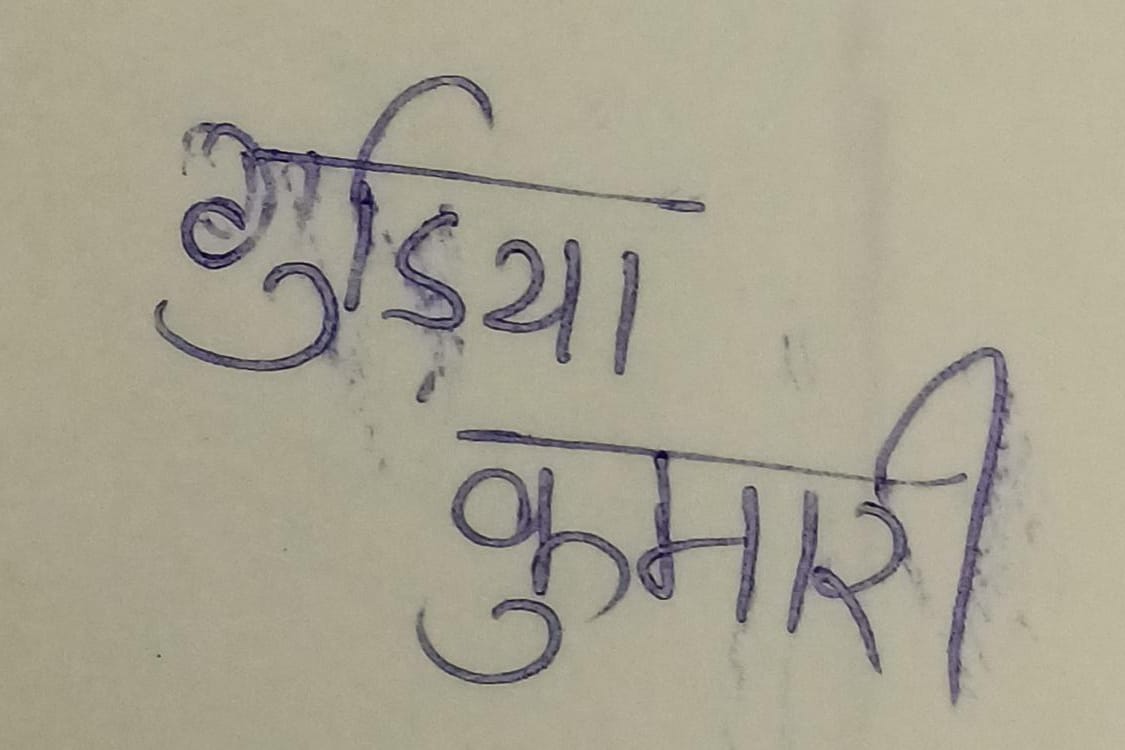 गुड़िया
कुमारी